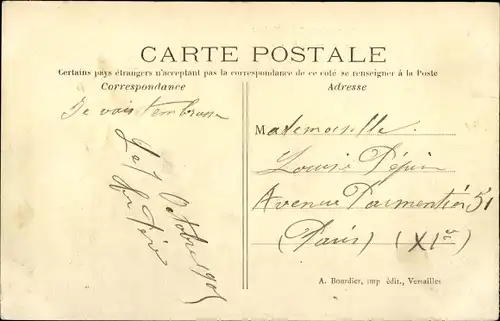 CARTE POSTALE
Certains pays étrangers n'acceptant pas la correspondance de ce coté se renseigner à la Poste
Correspondance
Adresse
Je vais t'embrasser
Le 7 Octobre 190
Mademoiselle
Louise Pépin
Avenue Parmentier 51
(Paris) (XIe)
A. Bourdier, imp édit., Versailles